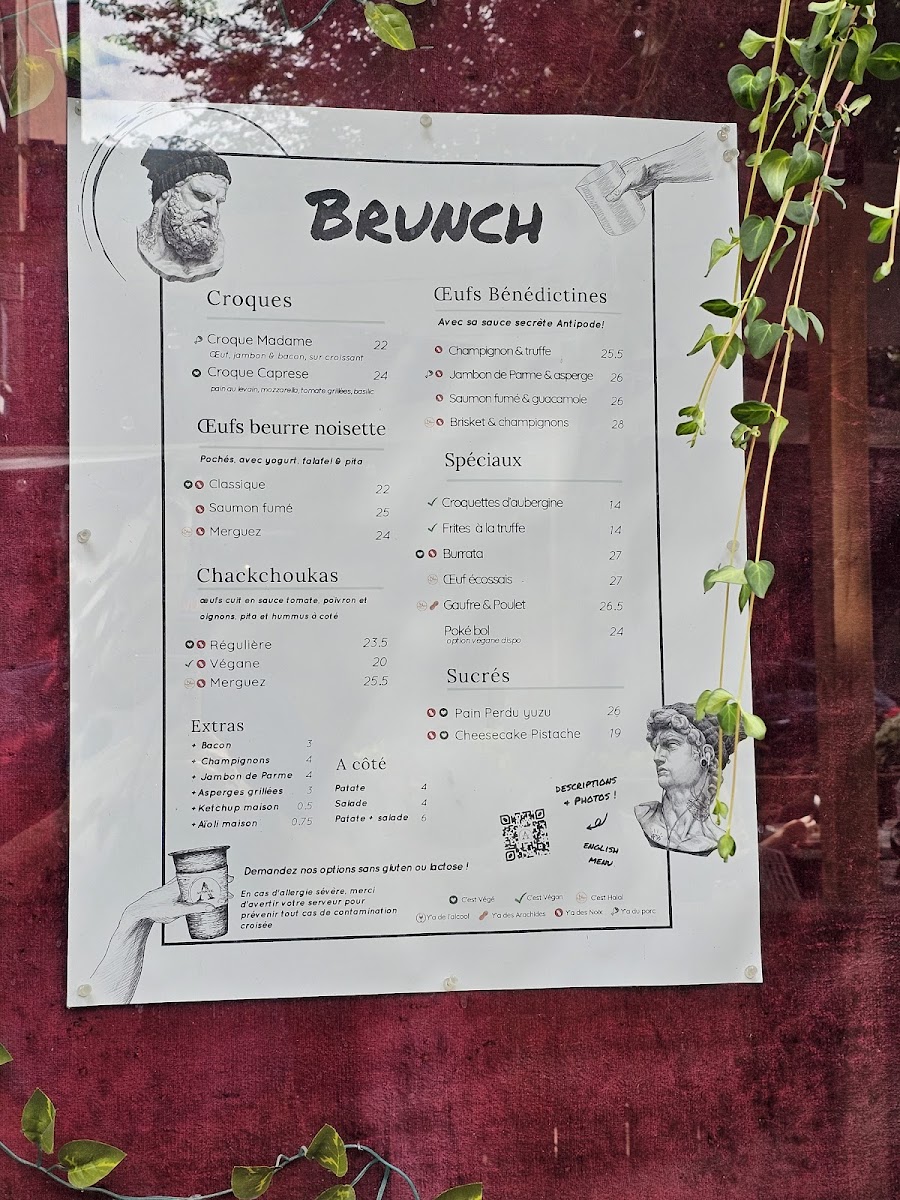 BRUNCH
Croques
Croque Madame 22
Œuf, jambon & bacon, sur croissant
Croque Caprese 24
pain au levain, mozzarella, tomate grillées, basilic
Œufs beurre noisette
Pochés, avec yogurt, falafel & pita
Classique 22
Saumon fumé 25
Merguez 24
Chackchoukas
œufs cuit en sauce tomate, poivron et
oignons, pita et hummus à coté
Régulière 23.5
Végane 20
Merguez 25.5
Extras
+ Bacon 3
+ Champignons 4
+ Jambon de Parme 4
+ Asperges grillées 3
+ Ketchup maison 0.5
+ Aïoli maison 0.75
Œufs Bénédictines
Avec sa sauce secrète Antipode!
Champignon & truffe 25.5
Jambon de Parme & asperge 26
Saumon fumé & guacamole 26
Brisket & champignons 28
Spéciaux
Croquettes d'aubergine 14
Frites à la truffe 14
Burrata 27
Œuf écossais 27
Gaufre & Poulet 26.5
Poké bol 24
option végane dispo
Sucrés
Pain Perdu yuzu 26
Cheesecake Pistache 19
A côté
Patate 4
Salade 4
Patate + salade 6
DESCRIPTIONS
+ PHOTOS !
ENGLISH
MENU
A
Demandez nos options sans gluten ou lactose !
En cas d'allergie sévère, merci
d'avertir votre serveur pour
prévenir tout cas de contamination
croisée
C'est Végé C'est Végan C'est Halal
Y'a de l'alcool Y'a des Arachides Y'a des Noix Y'a du porc